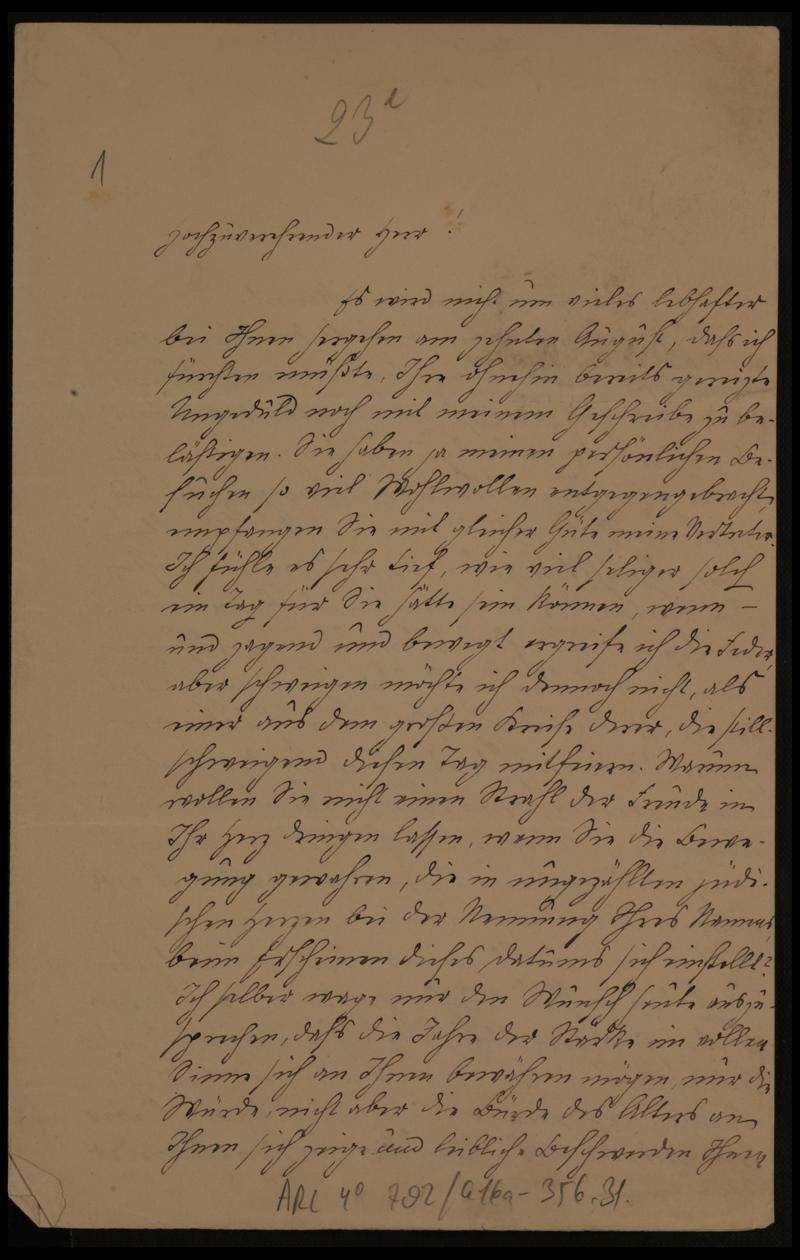 23a
1
Hochzuverehrender Herr!
Es wird nicht um vieles lebhafter
bei Ihnen hergehen am zehnten August, daß ich
fürchten müßte, Ihre ohnehin bereits gereizte
Ungeduld noch mit meinem Geschreibe zu be-
lästigen. Sie haben ja meinen persönlichen Be-
suchen so viel Wohlwollen entgegengebracht,
empfangen Sie mit gleicher Güte meine Vertreter.
Ich fühle es sehr tief, wie viel seliger solch
ein Tag für Sie hätte sein können, wenn –
und zagend und bewegt ergreife ich die Feder,
aber schweigen möchte ich dennoch nicht, als
einer aus dem großen Kreise derer, die still-
schweigend diesen Tag mitfeiern. Warum
wollen Sie nicht einen Strahl der Freude in
Ihr Herz dringen lassen, wenn Sie die Bewe-
gung gewahren, die in ungezählten jüdi-
schen Herzen bei der Nennung Ihres Namens,
beim Erscheinen dieses Datums sich einstellt?
Ich selber wage nur den Wunsch heute auszu-
sprechen, daß die Jahre der Stärke im vollen
Sinne sich an Ihnen bewähren mögen, nur die
Würde, nicht aber die Bürde des Alters an
Ihnen sich zeige und leibliche Beschwerden Ihnen
ARC 4° 792/A16a-356.31.